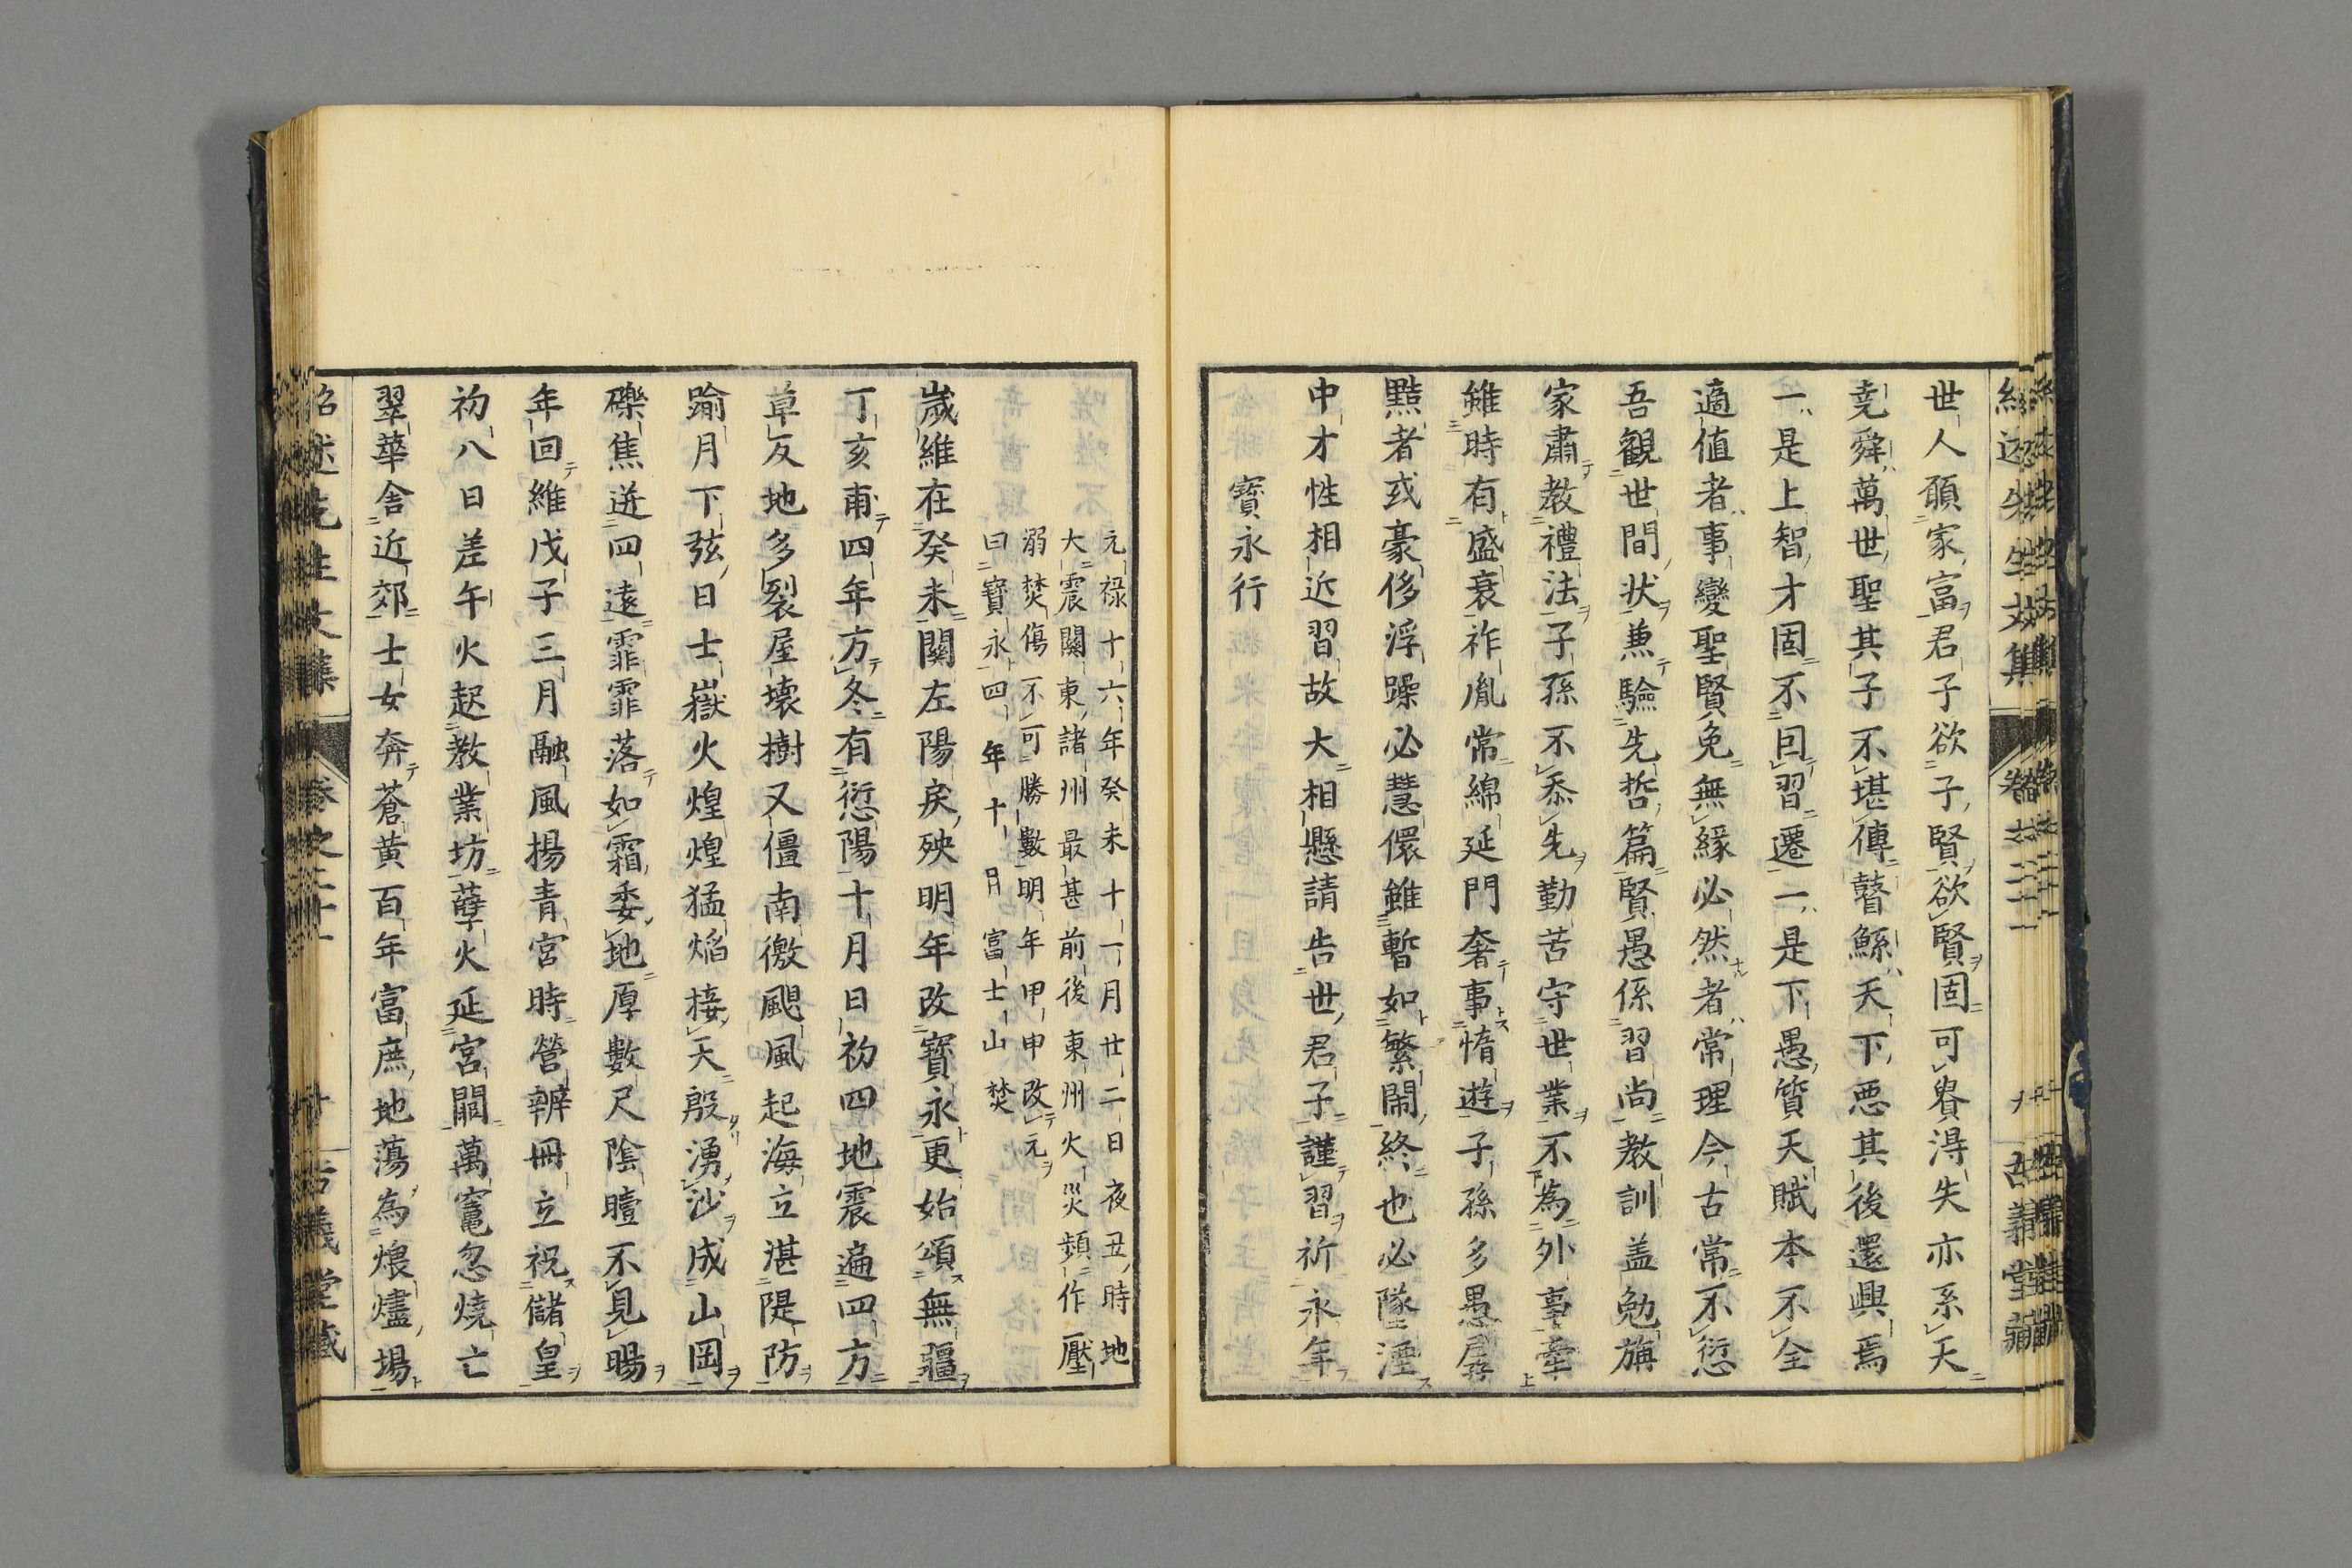 世人願家富君子欲子賢欲賢固可貴得失亦系天
堯舜萬世聖其子不堪傳瞽鯀天下惡其後還興焉
一是上智才固不因習遷一是下愚質天賦本不全
適値者事變聖賢免無緣必然者常理今古常不愆
吾觀世間狀兼驗先哲篇賢愚係習尚教訓盖勉旃
家肅教禮法子孫不忝先勤苦守世業不為外事牽
雖時有盛衰祚胤常綿延門奢事惰遊子孫多愚孱
黠者或豪侈浮躁必慧儇雖暫如繁鬧終也必墜湮
中才性相近習故大相懸請告世君子謹習祈永年
寶永行
元祿十六年癸未十一月廿二日夜丑時地
大震關東諸州最甚前後東州火災頻作壓
溺焚傷不可勝數明年甲申改元
曰寶永四年十一月富士山焚
歲維在癸未關左陽戾殃明年改寶永更始頌無疆
丁亥甫四年方冬有愆陽十月日初四地震遍四方
草反地多裂屋壞樹又僵南徼颶風起海立湛隄防
踰月下弦日士嶽火煌煌猛焰接天殷湧沙成山岡
礫焦迸四遠霏霏落如霜委地厚數尺陰曀不見暘
年回維戊子三月融風揚青宮時營辨冊立祝儲皇
初八日差午火起教業坊孽火延宮闕萬竈忽燒亡
翠華舍近郊士女奔蒼黄百年富庶地蕩為煨燼場
紹述先生文集 卷之二十一 十 古義堂藏